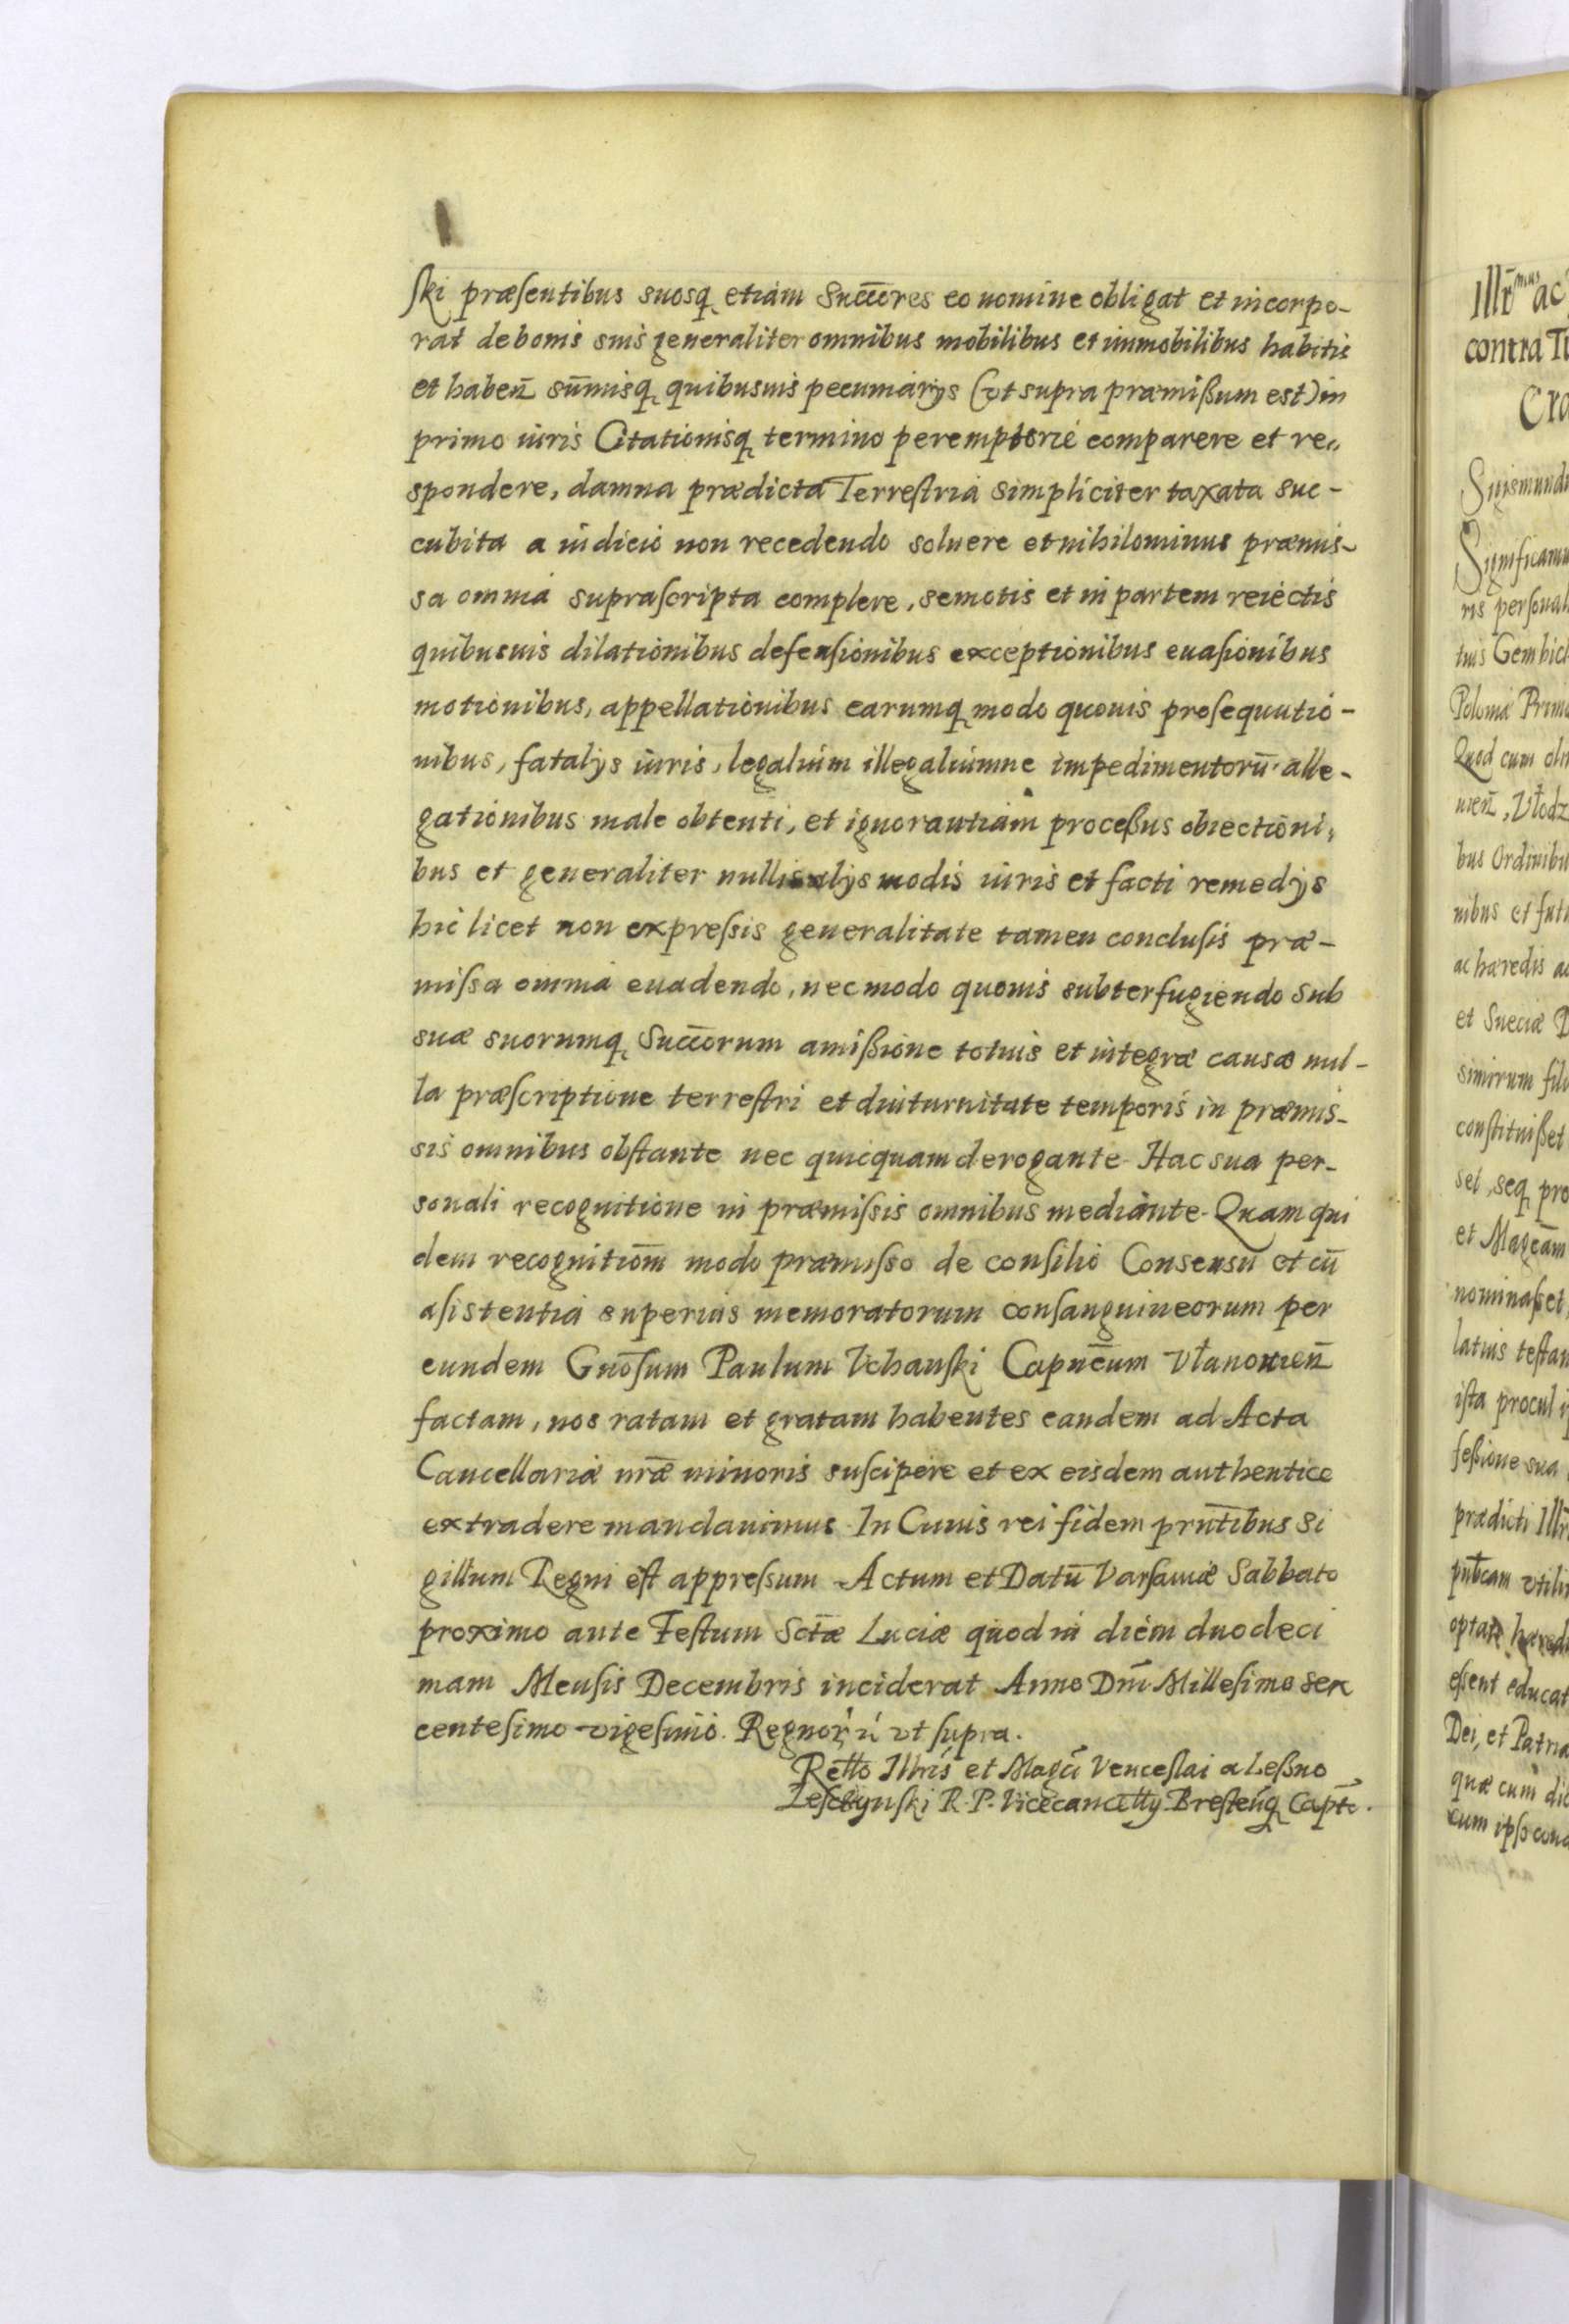 ſki præſentibus suosq₃ etiam Succ̄ores eo nomine obligat et incorpo-
rat de bonis suis generaliter omnibus mobilibus et immobilibus habitis
et haben̄ sum̄isq₃ quibusuis pecuniarijs (vt supra præmißum est) in
primo iuris Citationisq₃ termino peremptorie comparere et re„
spondere, damna prædicta Terreſtria simpliciter taxata suc-
cubita a iudicio non recedendo soluere et nihilominus præmis-
sa omnia supraſcripta complere, semotis et in partem reiectis
quibusuis dilationibus defenſionibus exceptionibus euaſionibus
motionibus, appellationibus earumq₃ modo quouis proſequutio-
nibus, fatalijs iuris, legalium illegaliumue impedimentorū alle-
gationibus male obtenti, et ignorantiam proceßus obiectioni„
bus et generaliter nullis alijs modis iuris et facti remedijs
hic licet non expreſsis generalitate tamen concluſis præ-
miſsa omnia euadendo, nec modo quouis subterfugiendo sub
suæ suorumq₃ Succ̄orum amißione totius et integræ causæ nul-
la præſcriptione terreſtri et diuturnitate temporis in præmis-
sis omnibus obſtante nec quicquam derogante. Hac sua per-
sonali recognitione in præmiſsis omnibus mediante. Quam qui
dem recognitiōm modo præmiſso de conſilio Consensu et cū
aſistentia superius memoratorum conſanguineorum per
eundem Gnōſum Paulum Vchanſki Capnēum Vłanouien̄
factam, nos ratam et gratam habentes eandem ad Acta
Cancellariæ nr̄æ minoris suſcipere et ex eisdem authentice
extradere mandauimus. In Cuius rei fidem prn̄tibus Si
gillum Regni eſt appreſsum. Actum et Datū Varſauiæ Sabbato
proximo ante Feſtum Sctǣ Luciæ quod in diem duodeci
mam Menſis Decembris inciderat Anno Dn̄i Milleſimo sex
centeſimo vigeſimo. Regnor̄ n̄ vt ſupra.
Rel̄lo Illr̄is et Magc̄i Venceſlai a Leßno
Leſczynſki R. P. Vicecancell̄ij Breſten̄q₃ Capt̄.
Illr̄mus ac
contra
Significamu
ris perſonal
tius Gembic
Poloniæ Prim
Quod cum oli
nibus et futu
ac hæredis
et Sueciæ
simirum fili
conſtituißet
et Magcām
nominaßet
latius teſtan
iſta procul
feßione sua
prædicti Illr̄
optare
eſsent educat
Dei, et Patria
quæ cum dic
cum ipſo